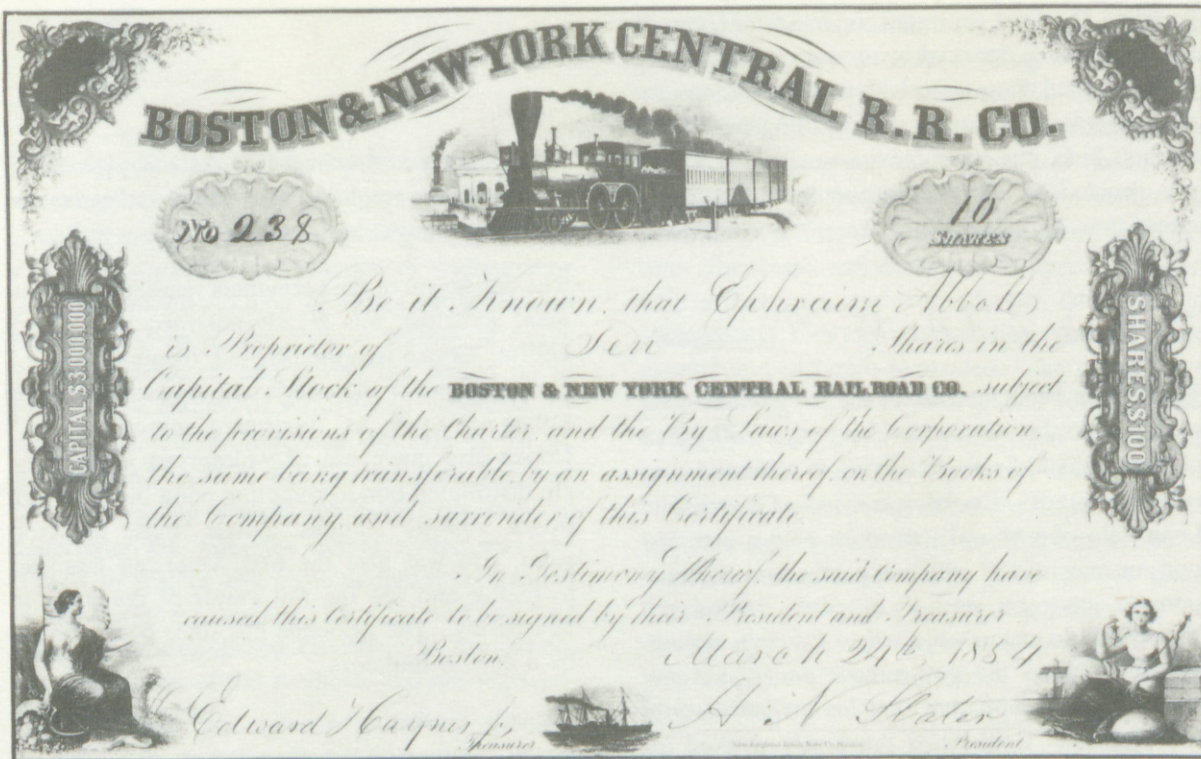 BOSTON & NEW-YORK CENTRAL R.R. CO.
No 238
10
SHARES
CAPITAL $3.000.000
SHARES $100
Be it Known, that Ephraim Abbott
is Proprietor of Ten Shares in the
Capital Stock of the BOSTON & NEW YORK CENTRAL RAILROAD CO. subject
to the provisions of the Charter, and the By Laws of the Corporation,
the same being transferable by an assignment thereof, on the Books of
the Company, and surrender of this Certificate.
In Testimony Whereof, the said Company have
caused this Certificate to be signed by their President and Treasurer
Boston, March 24th, 1854
Edward Haynes Jr,
Treasurer
H N Slater
President
New England Bank Note Co. Boston